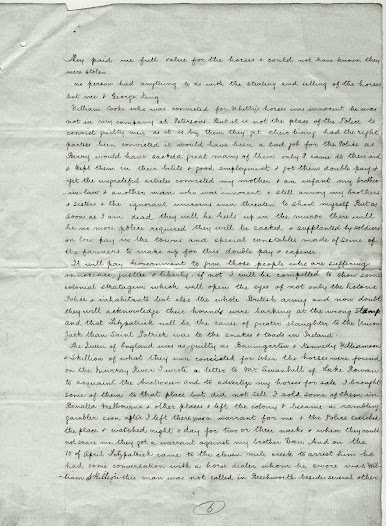 They paid me full value for the horses & could not have known they
were stolen
no person had anything to do with the stealing and selling of the horses
but me & George King
William Cooke who was convicted for Whitty's horses was innocent he was
not in my company at Petersons But it is not the place of the Police to
convict guilty men as it is by them they get their living had the right
parties been convicted it would have been a bad job for the Police as
Berry would have sacked a great many of them only I came to their aid
& kept them in their bilits & good employment & got them double pay &
yet the ungrateful articles convicted my mother & an infant my brother
in-law & another man who was innocent & still annoy my brothers
& sisters & the ignorant unicorns even threaten to shoot myself But as
soon as I am dead they will be heels up in the muroo there will
be no more police required they will be sacked & supplanted by soldiers
on low pay in the towns and special constables made of some of
the farmers to make up for this double pay & expence
It will pay Government to give those people who are suffering
innocence, justice & liberty if not I will be compelled to show some
colonial stratagem which will open the eyes of not only the Victoria
Police & inhabitants but also the whole British army and now doubt
they will acknowledge their hounds were barking at the wrong stump
and that Fitzpatrick will be the cause of greater slaughter to the Union
Jack than Saint Patrick was to the snakes & toads in Ireland
The Queen of England was as guilty as Baumgarten & Kennedy Williamson
& Skillion of what they were convicted for When the horses were found
on the Murray River I wrote a letter to Mr Swanhill of Lake Rowan
to acquaint the Auctioneer and to advertize my horses for sale I brought
some of them to that place but did not sell I sold some of them in
Benalla Melbourne & other places & left the colony & became a rambling
gambler soon after I left there was a warrant for me & the Police searched
the place & watched night & day for two or three weeks & when they could
not snare me they got a warrant against my brother Dan And on the
15 of April Fitzpatrick came to the eleven mile creek to arrest him he
had some conversation with a horse dealer whom he swore was Will-
iam Skillion this man was not called in Beechworth besides several other
6